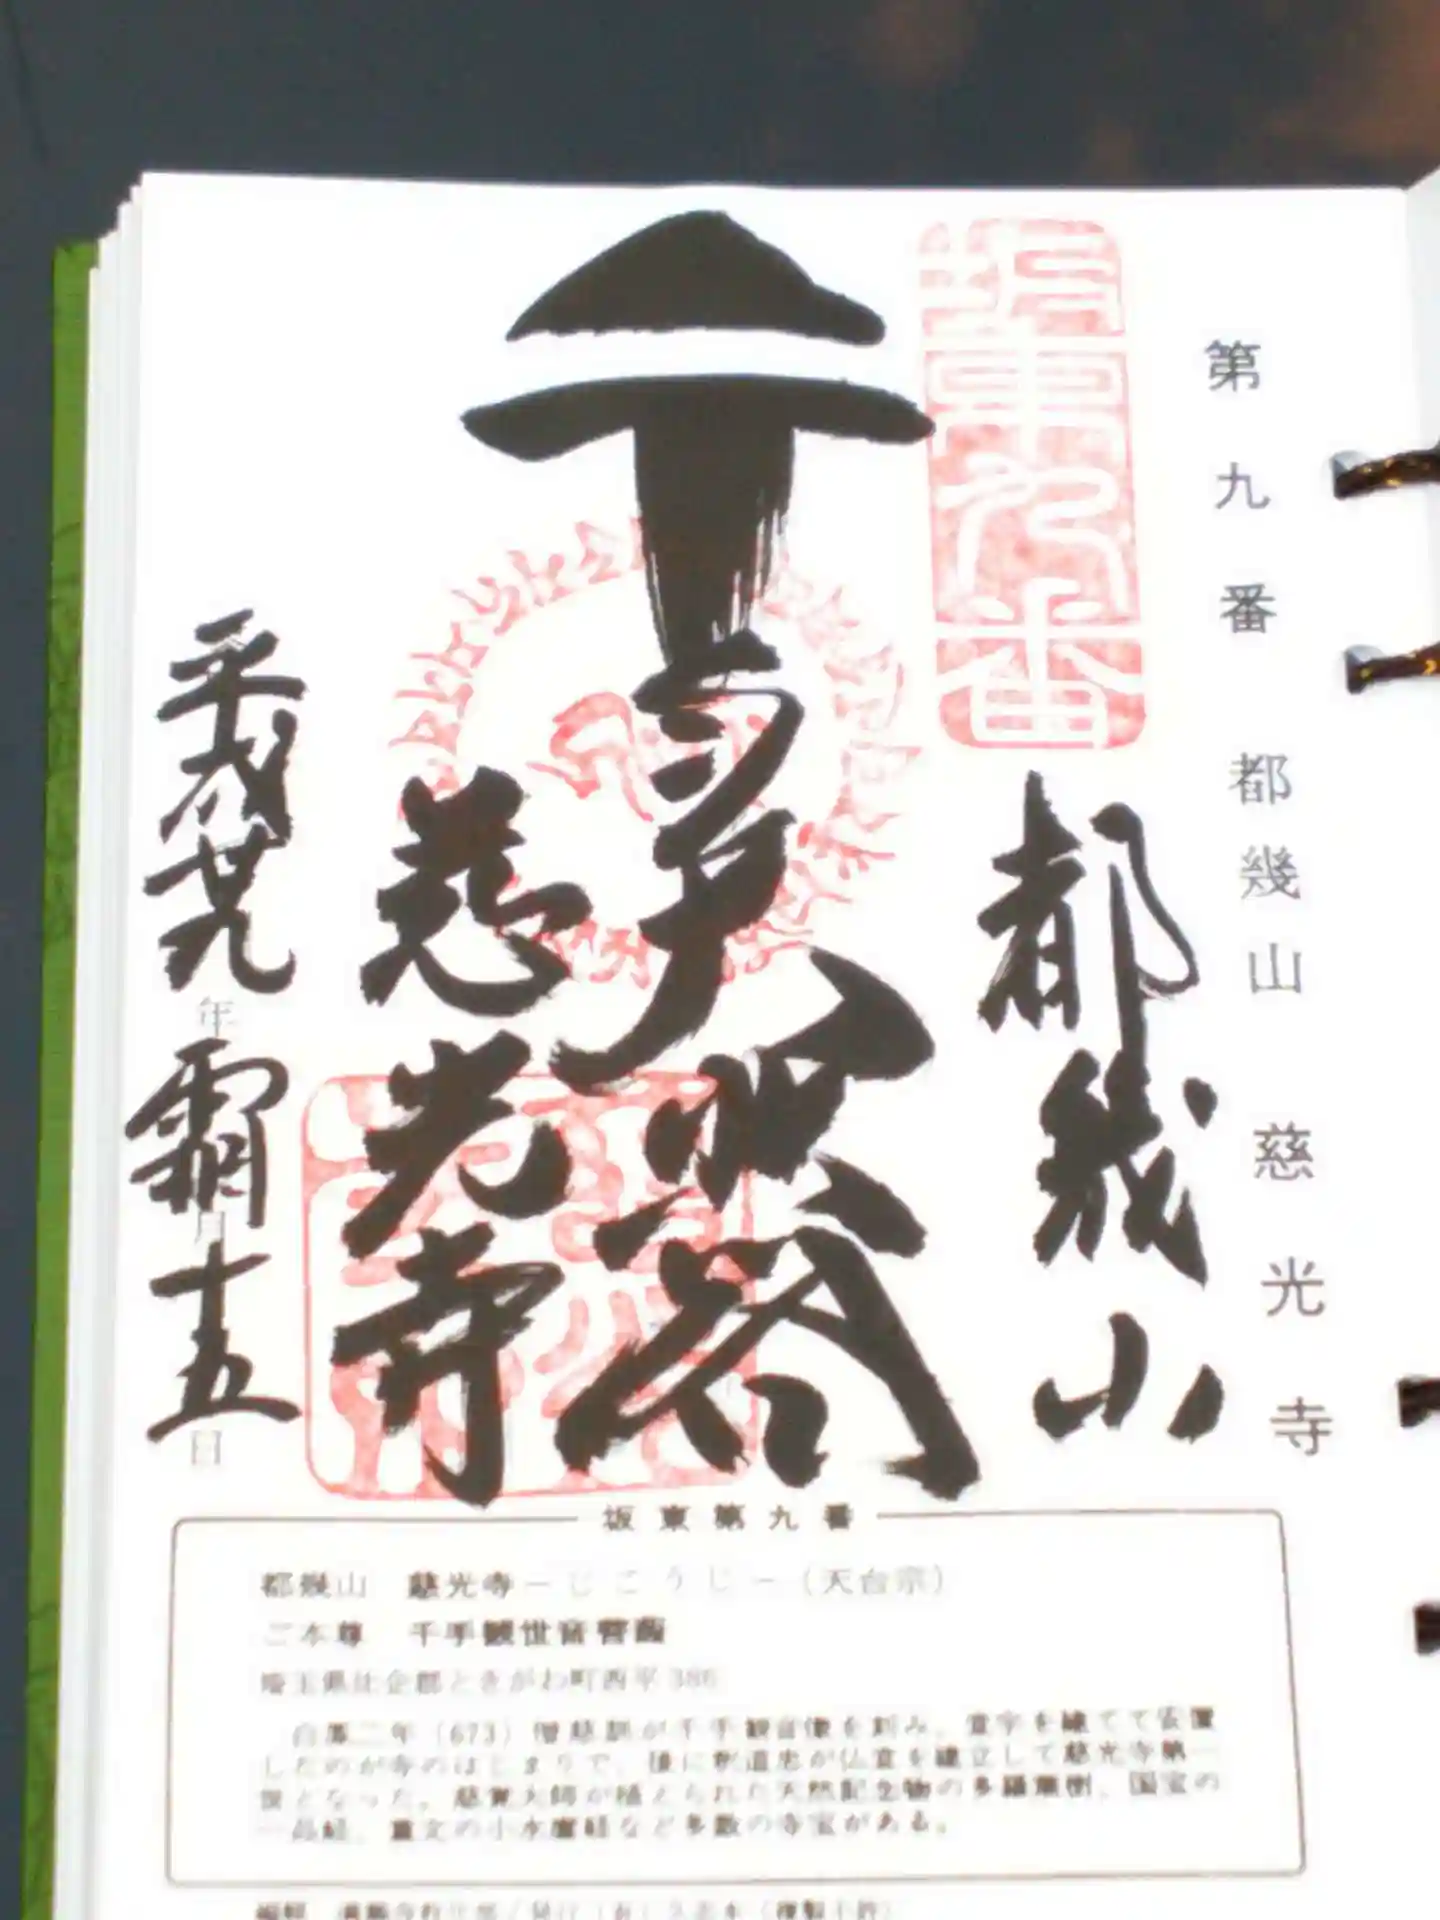 第九番 都幾山 慈光寺
坂東九番
都幾山
千手大悲閣
慈光寺
平成廿九年霜月十五日
坂東第九番
都幾山 慈光寺―じこうじ―(天台宗)
ご本尊 千手観世音菩薩
埼玉県比企郡ときがわ町西平386
白鳳二年(673)僧慈訓が千手観音像を刻み、堂宇を建てて安置
したのが寺のはじまりで、後に釈道忠が仏堂を建立して慈光寺第一
世となった。慈覚大師が植えられた天然記念物の多羅葉樹、国宝の
一品経、重文の小水麿経など多数の寺宝がある。